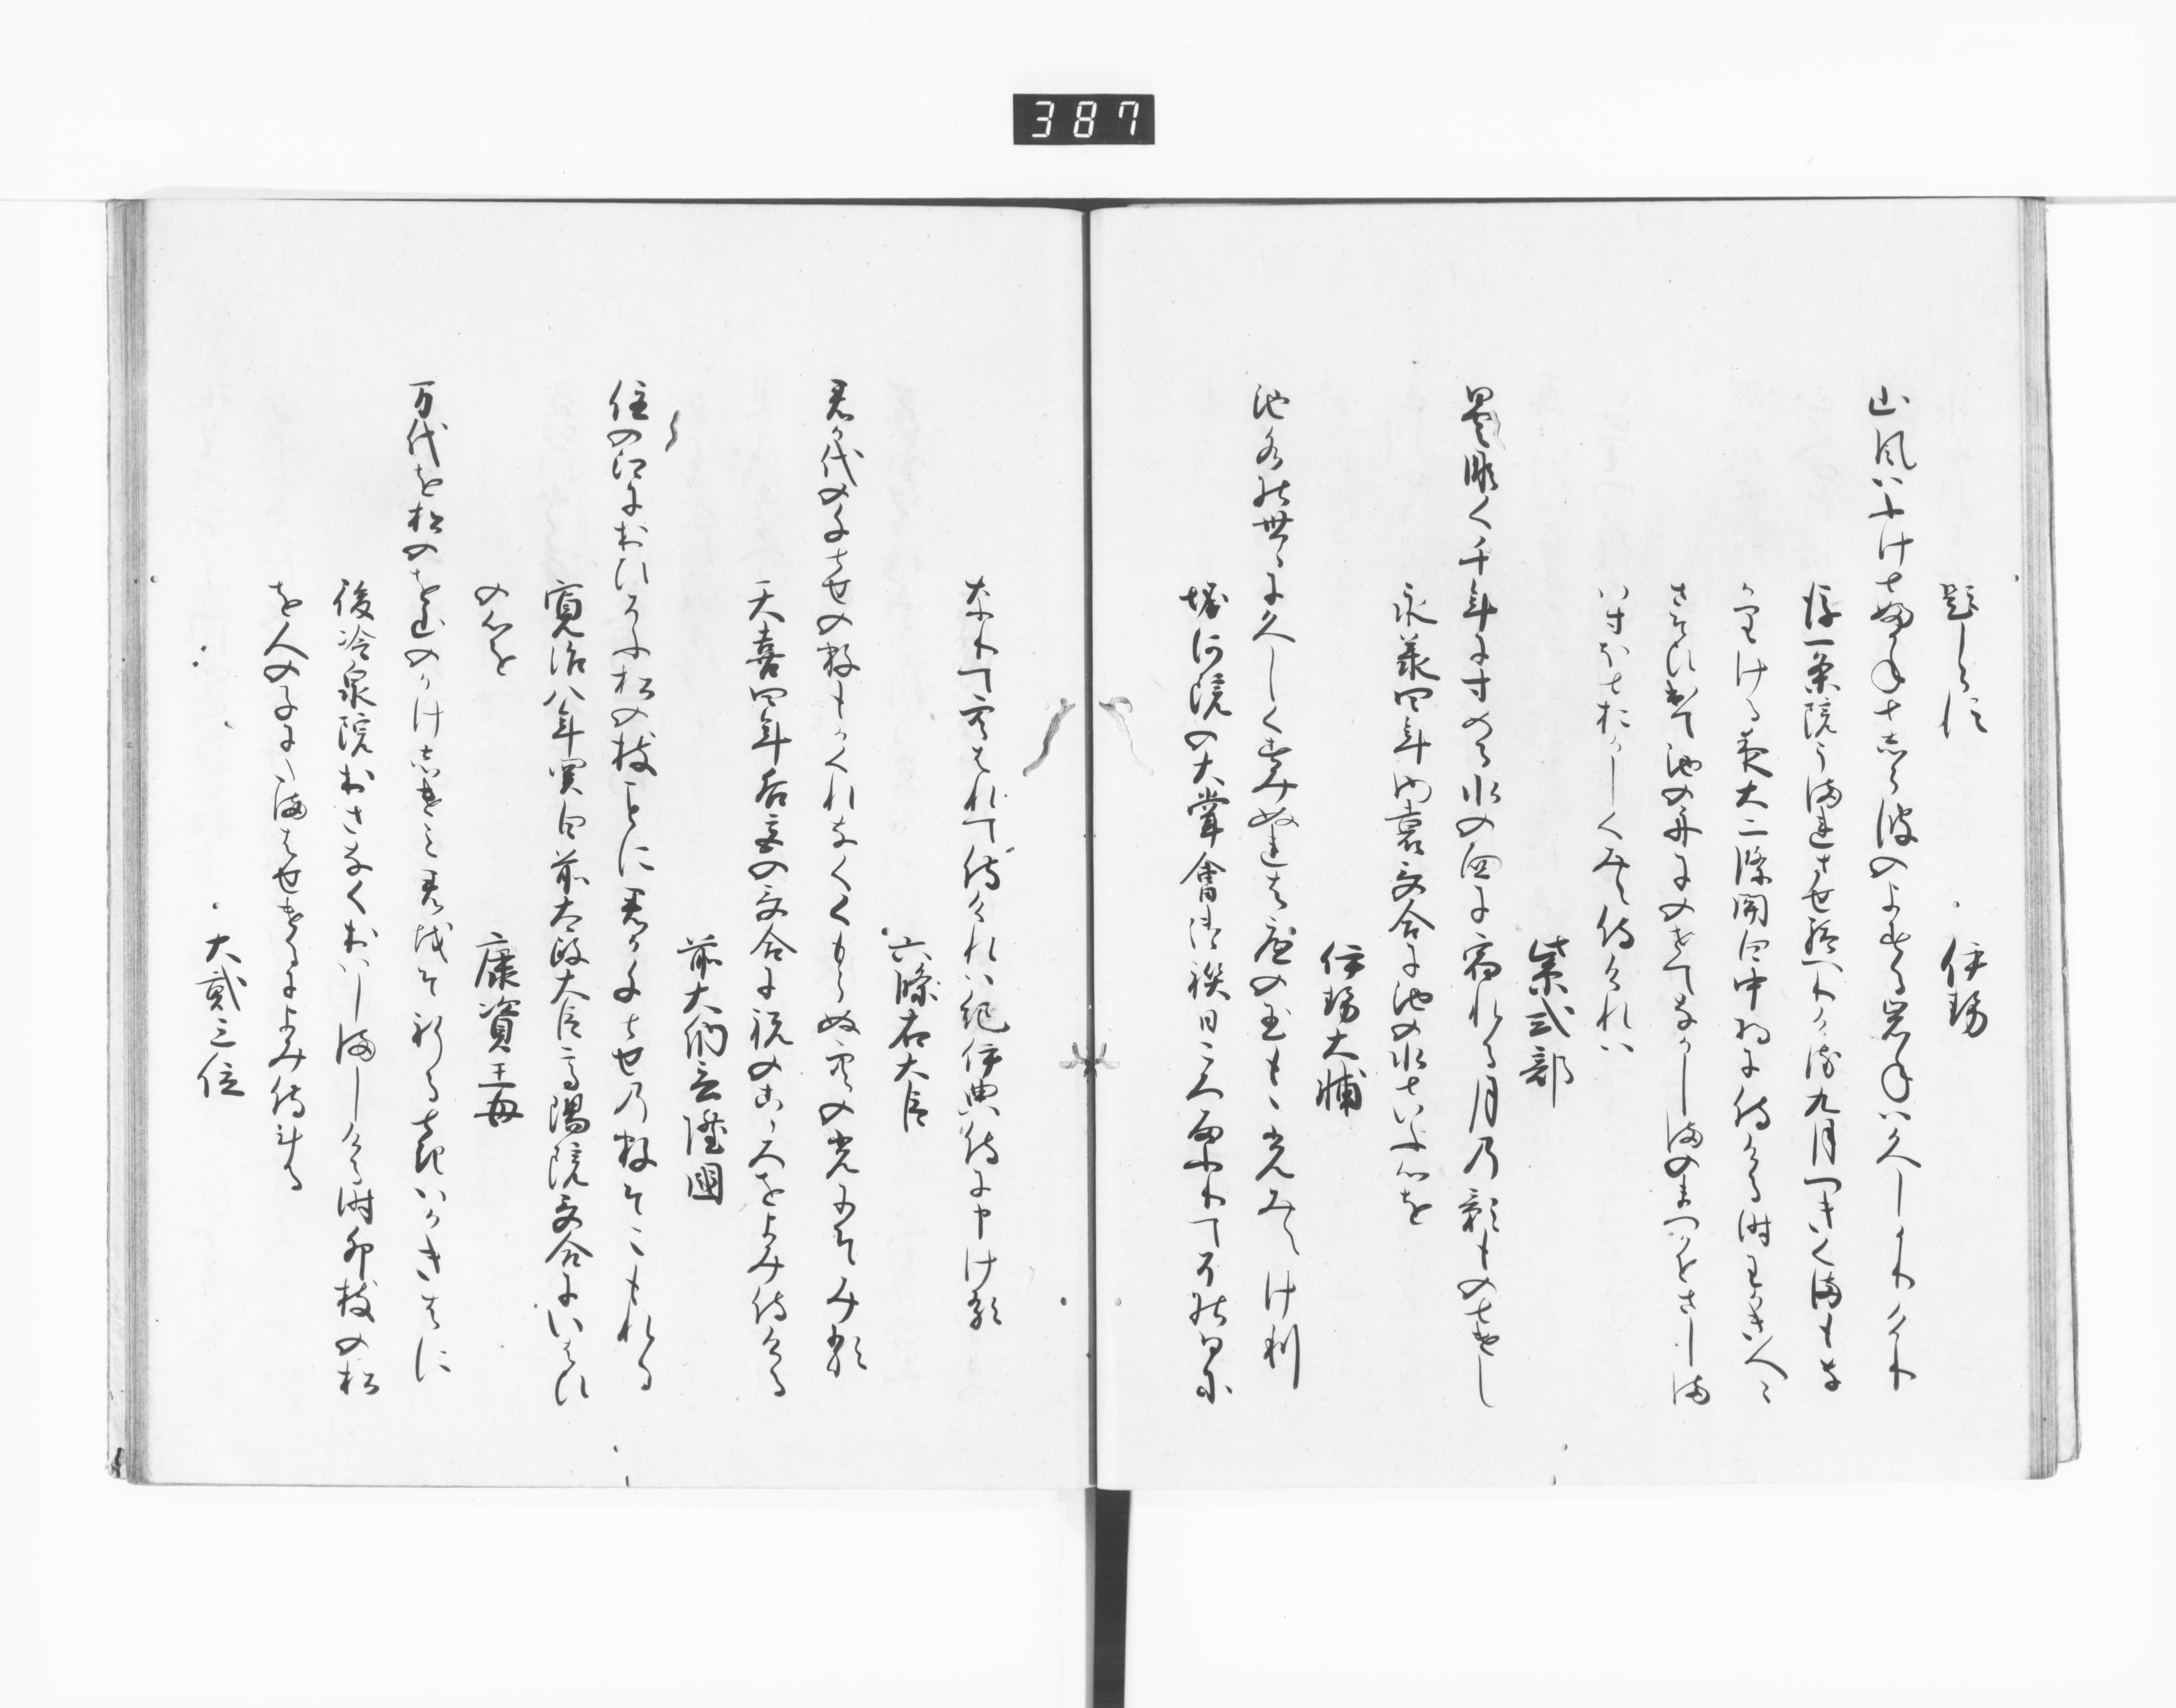 387
題しらす　伊勢
山風はふけとふかねとしら波のよする岩ねは久しかりけり
後一条院うまれさせ給へりける九月つきくまもな
かりける夜大二條関白中将に侍ける時わかき人々
さそひ出て池の舟にのせてなかしまの松かけさしま
はすほとおかしくみえ侍けれは
紫式部
曇なく千年にすめる水の面に宿れる月の影ものとけし
永承四年内裏哥合に池の水といふ心を
伊勢大輔
池水の世々に久しくすみぬれはそこの玉もゝ光みえけり
堀河院の大嘗会御禊日ころ雨ふりてその日に
なりて空はれて侍けれは紀伊典侍に申ける
六條右大臣
君か代の千とせの数もかくれなくくもらぬ空の光にそみる
天喜四年后宮の哥合に祝のこゝろをよみ侍ける
前大納言隆国
住の江におひそふ松の枝ことに君か千とせの数そこもれる
寛治八年関白前太政大臣高陽院哥合にいはひ
の心を
康資王母
万代を松のを山のかけしけみ君をそ祈るときはかきはに
後冷泉院おさなくおはしましける時卯杖の松
を人の子にたまはせけるによみ侍ける
大貳三位